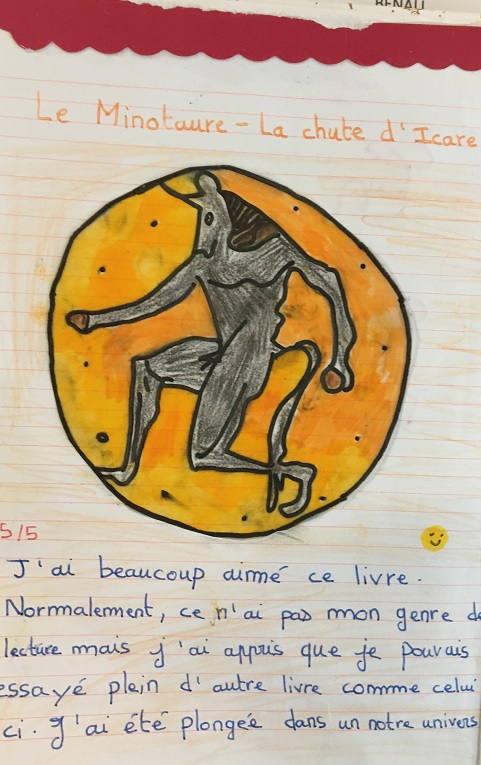 RENAU
Le Minotaure - La chute d'Icare
5/5
J'ai beaucoup aimé ce livre.
Normalement, ce n'ai pas mon genre de
lecture mais j'ai appris que je pouvais
essayé plein d'autre livre comme celui
ci. J'ai été plongée dans un notre univers